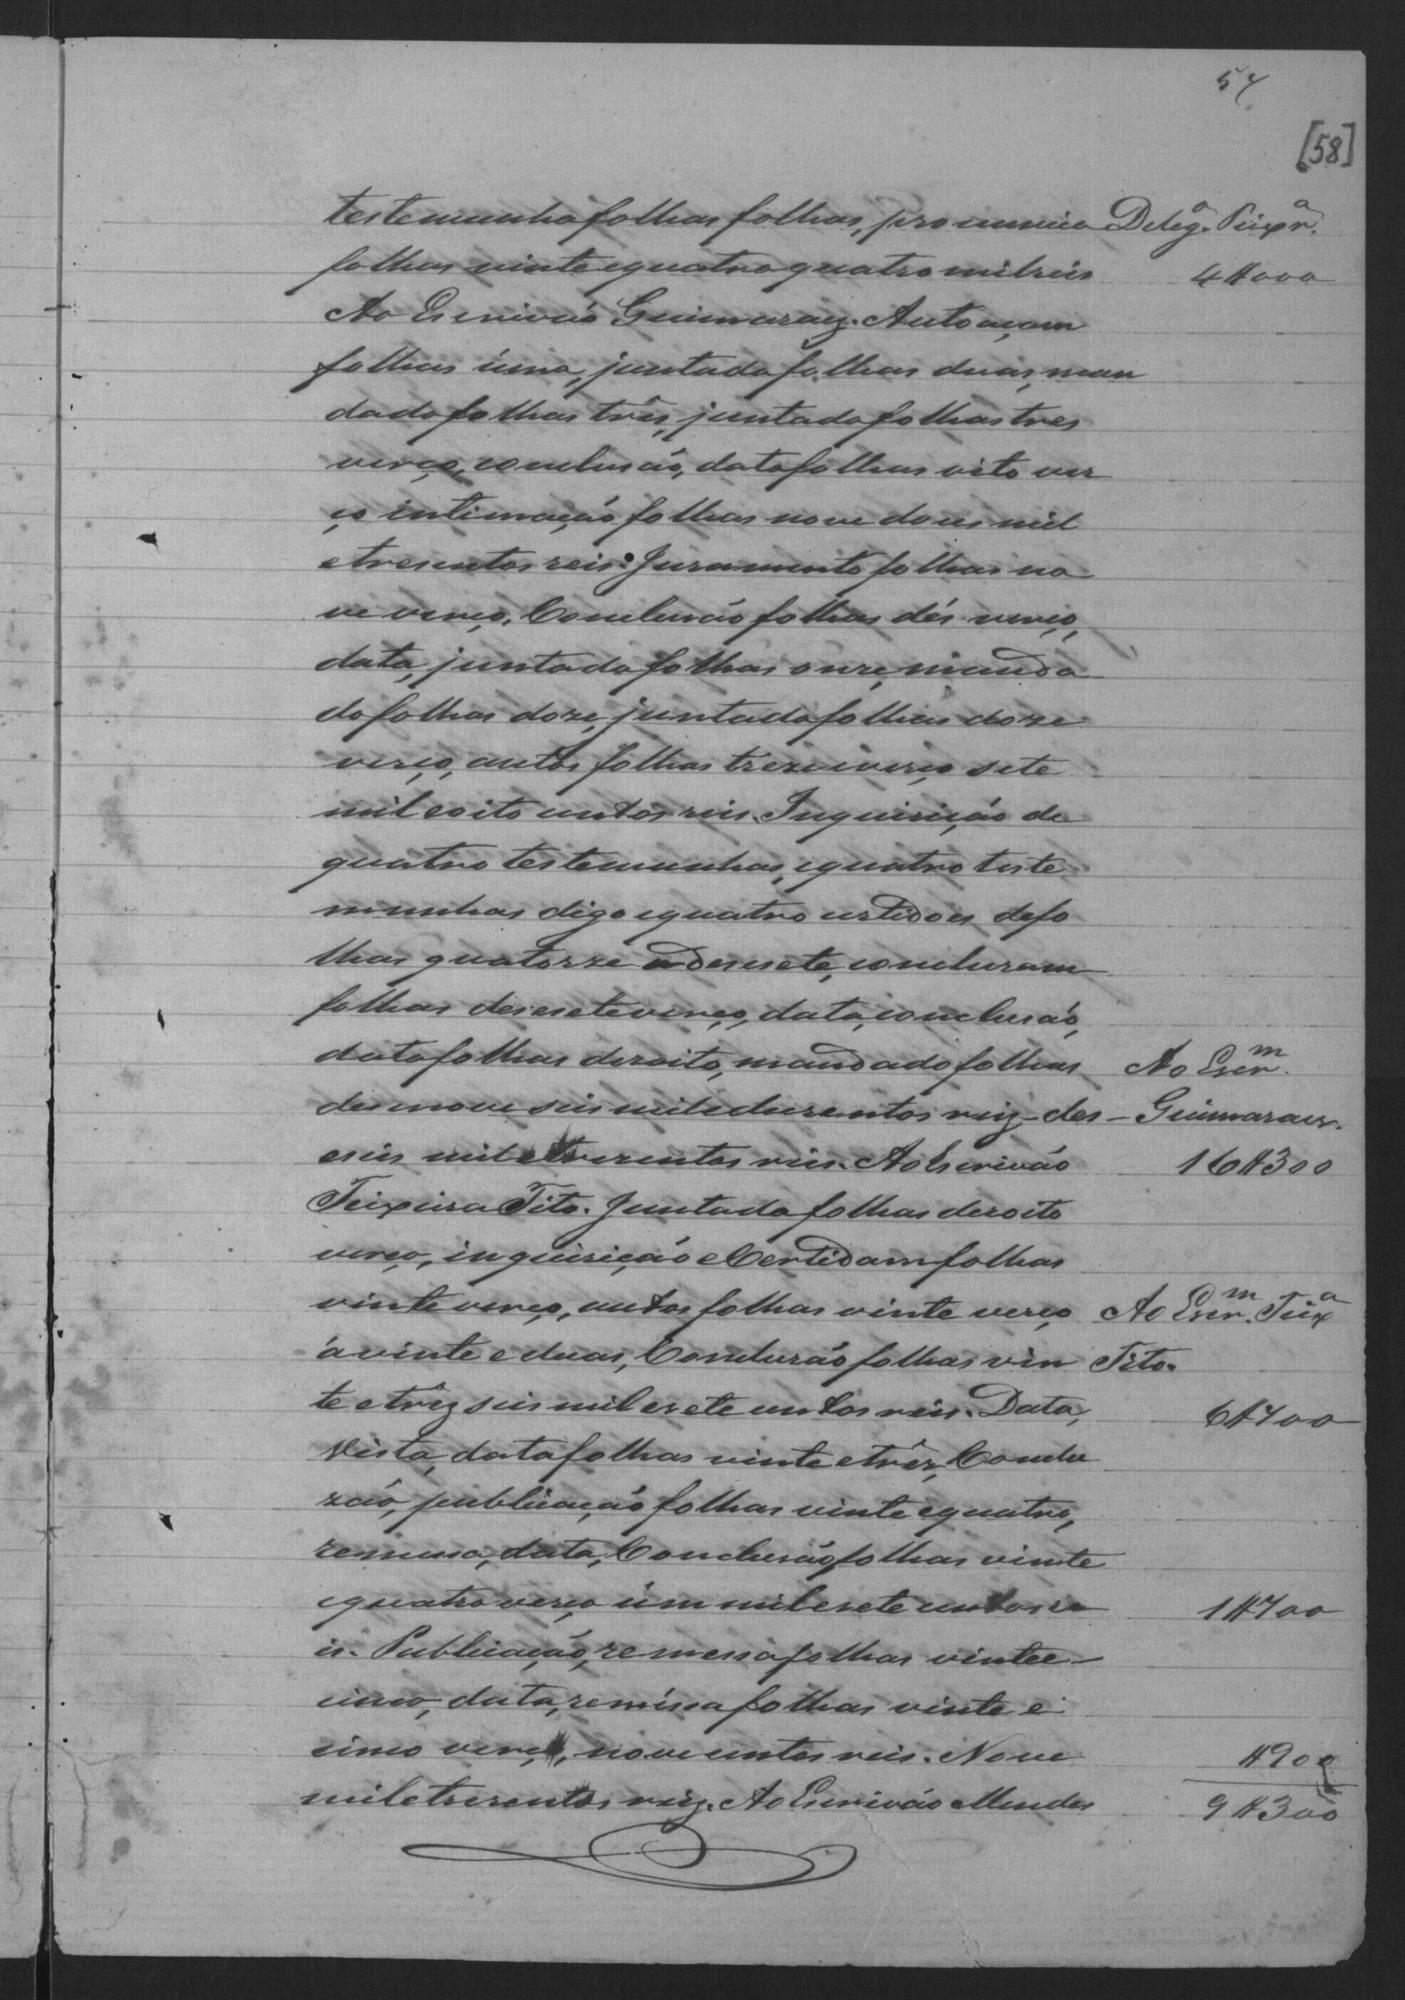 57
[58]
testemunha folhas folhas, pronuncia Deleg.º Teixr.ª
folhas vinte equatro quatro mil reis 4$000
Ao Escrivão Guimaraez. Autoaçam
folhas úma, juntada folhas duas, man
dado folhas três, juntada folhas tres
verço, conclusão, data folhas oito ver
ço intimação folhas nove dous mil
etresentos reis. Juramento folhas no
ve verço, Conclusão folhas dés verço,
data, juntada folhas onze, manda
do folhas doze, juntada folhas doze
verço, autos folhas treze iverço sete
mil eoito centos reis. Inquirição de
quatro testemunhas, equatro teste
munhas digo equatro certidoes defo
lhas quatorze a desesete, concluzam
folhas desesete verço, data, conclusão,
data folhas dezoito, mandado folhas Ao Escr.m
desnove seis mil eduzentos reiz - des - Guimaraez.
eseis mil etrezentos reis. Ao Escrivão 16$300
Teixeira Tito. Juntada folhas dezoito
verço, inquirição e Certidam folhas
vinte verço, autos folhas vinte verço Ao Escr.m Teix.a
á vinte e duas, Conclusão folhas vin Tito.
te etrêz seis mil esete centos reis. Data, 6$700
Vista, data folhas vinte etrêz, Conclu
zão, publicação folhas vinte equatro,
remessa, data, Conclusão folhas vinte
equatro verço úm mil esete centos re 1$700
is. Publicação, remessa folhas vinte e
cinco, data, reméssa folhas vinte e
cinco verço, nove centos reis. Nove $900
mil etrezentos reiz. Ao Escrivão Mendes 9$300